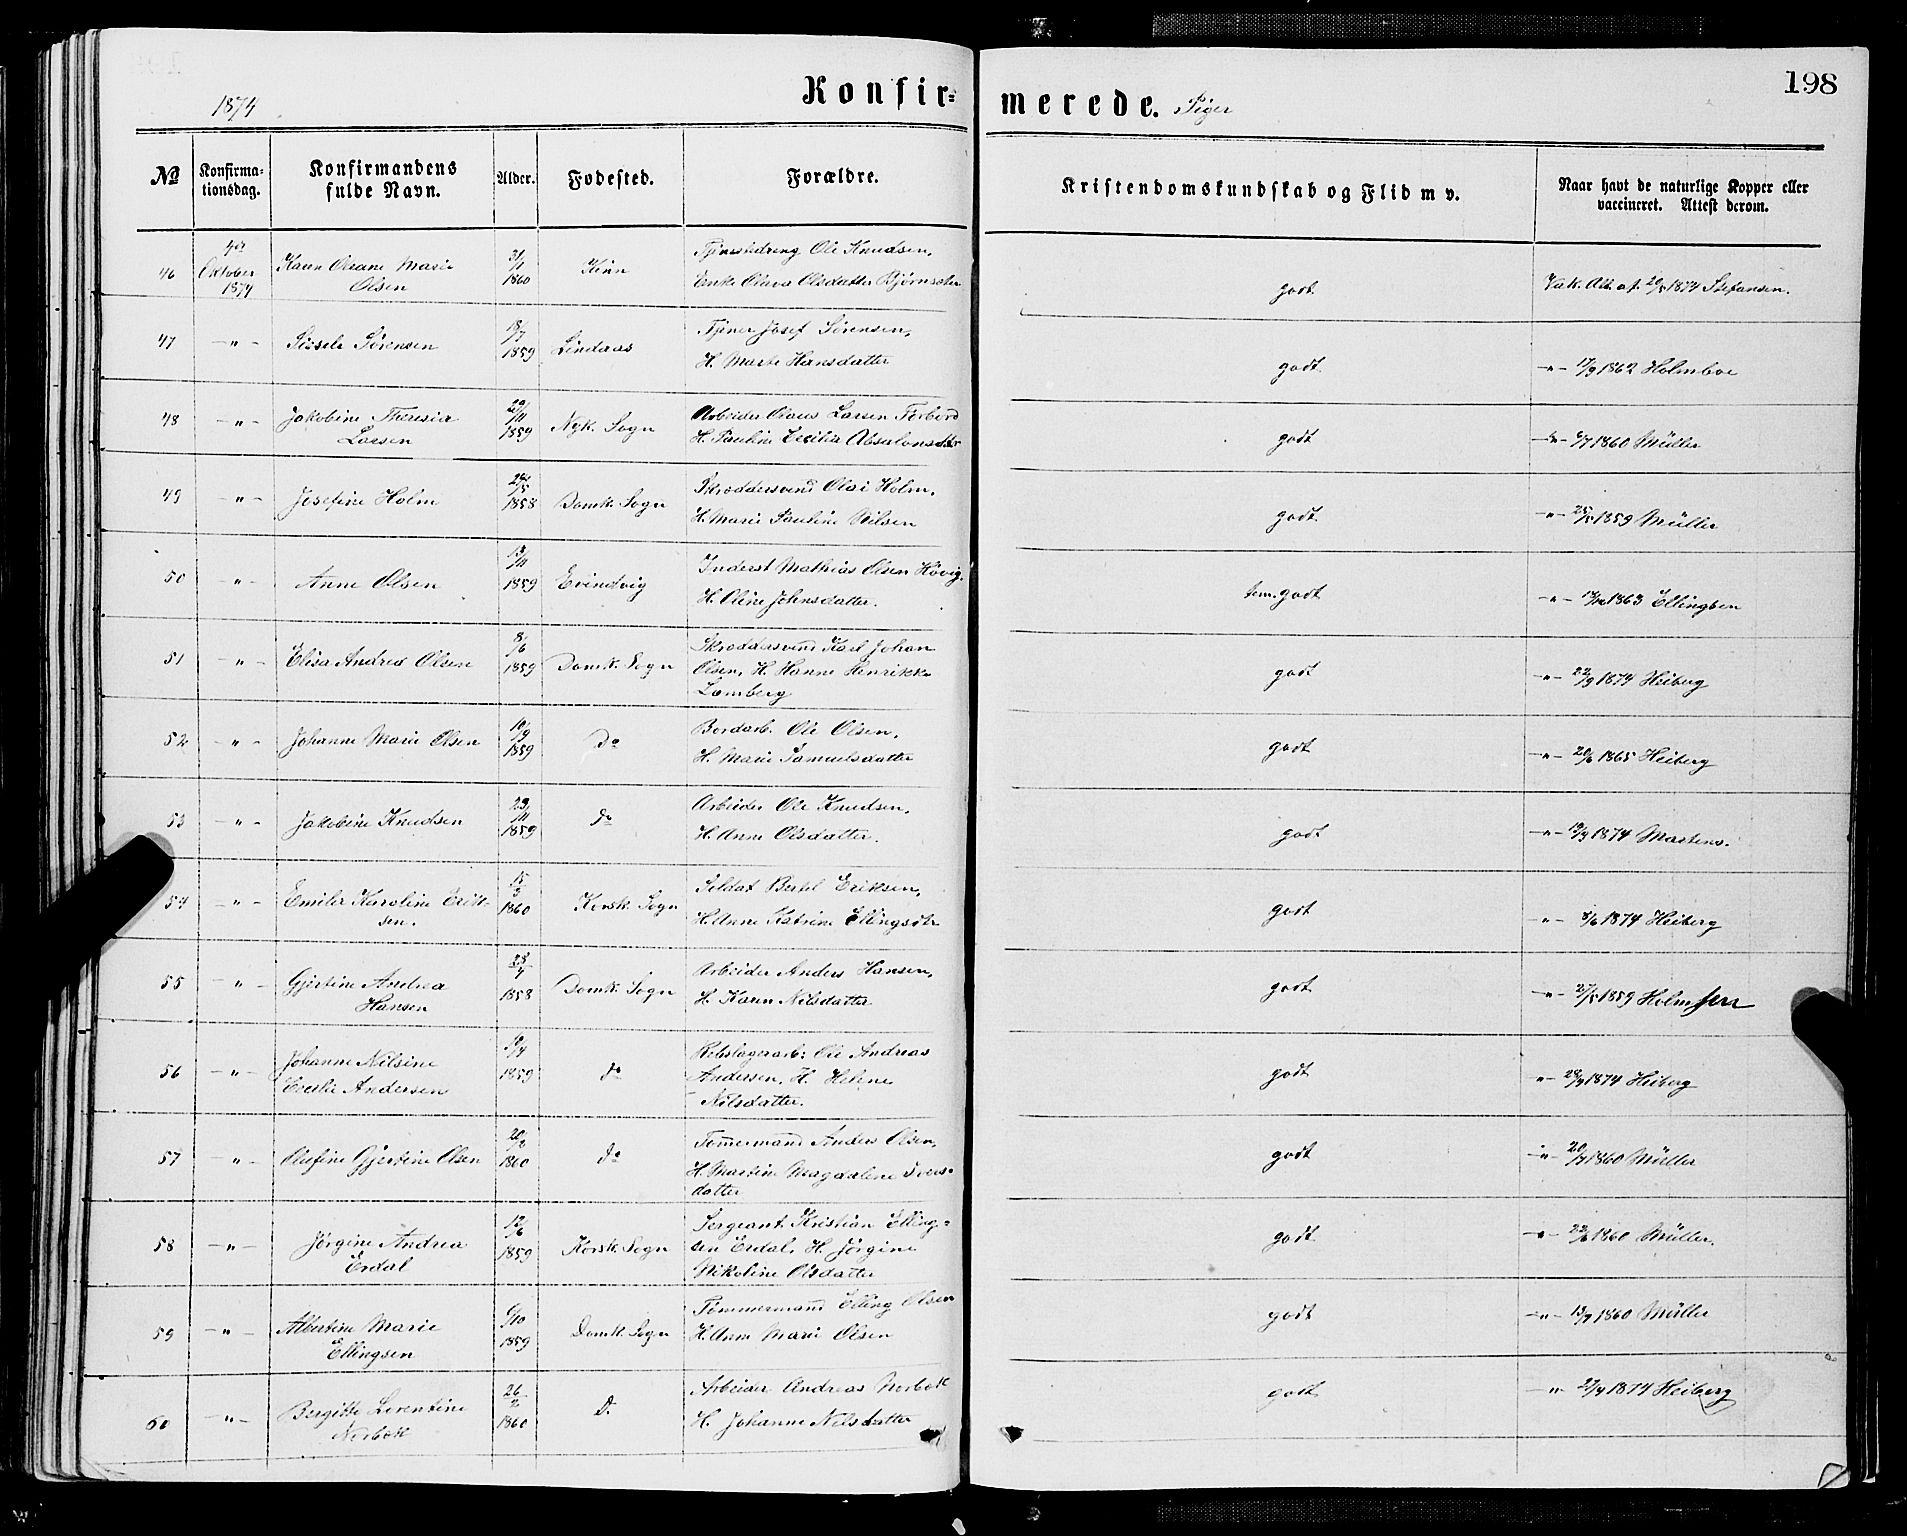 198
1874
Konfir=
merede. Piger
No
Konfirma=
tionsdag.
Konfirmandens
fulde Navn.
Alder.
Fødested.
Forældre.
Kristendomskundskab og Flid m v.
Naar havt de naturlige Kopper eller
vaccineret. Attest derom.
46 4de Oktober 1874 Karen Oleane Marie Olsen 3/1 1860 Kinn
Tjenestedreng Ole Knudsen,
Enke Olava Olsdatter
godt
Vak. Att. af 20/5 1874 Stefansen.
47 -"- Sissele Sørensen 18/7 1859 Lindaas
Tjener Josef Sørensen,
H. Marte Hansdatter
godt
-"- 17/9 1862 Holmboe
48 -"- Jakobine Theresia Larsen 29/11 1859 Nyk. Sogn
Arbeider Olaus Larsen
H. Pauline Cecilia Absalonsdtr
godt
-"- 1860 Müller
49 -"- Josefine Holm 24/5 1858 Domk. Sogn
Skræddersvend Olai Holm,
H. Marie Pauline Nilsen
godt
-"- 25/5 1859 Müller
50 -"- Anne Olsen 13/11 1859 Evindvig
Inderst Mathias Olsen Høvig,
H. Oline Johnsdatter.
tem. godt
-"- 1863 Ellingsen
51 -"- Elisa Andrea Olsen 8/6 1859 Domk. Sogn
Skræddersvend Karl Johan
Olsen, H. Hanne Henrikke
Lamberg
godt
-"- 22/9 1874 Heiberg
52 -"- Johanne Marie Olsen 10/9 1859 Do
Bordarb. Ole Olsen,
H. Marie Samuelsdatter
godt
-"- 20/6 1865 Heiberg
53 -"- Jakobine Knudsen 29/11 1859 do
Arbeider Ole Knudsen,
H. Anne Olsdatter.
godt
-"- 19/9 1874 Martens.
54 -"- Emilie Karoline Erik=
sen. 15/3 1860 Korsk. Sogn
Soldat Bertel Eriksen,
H. Anne Katrine Ellingsdtr
godt
-"- 8/6 1874 Heiberg
55 -"- Gjertine Andrea Hansen 28/4 1858 Domk. Sogn
Arbeider Anders Hansen,
H. Karen Nilsdatter
godt
-"- 27/5 1859 Holmsen
56 -"- Johanne Nilsine
Cecilie Andersen 10/4 1859 do
Rebslagerarb: Ole Andreas
Andersen, H. Helene
Nilsdatter.
godt
-"- 28/9 1874 Heiberg
57 -"- Olefine Gjertine Olsen 20/2 1860 do
Tømermand Anders Olsen,
H. Martine Magdalene Ivers=
datter
godt
-"- 20/7 1860 Müller
58 -"- Jørgine Andrea Erdal 12/6 1859 Korsk. Sogn
Sergeant Kristian Elling=
sen Erdal, H. Jørgine
Nikoline Olsdatter
godt
-"- 22/6 1860 Müller.
59 -"- Albertine Marie Ellingsen 6/10 1859 Domk. Sogn
Tømmermand Elling Olsen
H. Anne Marie Olsen
godt
-"- 13/7 1860 Müller
60 -"- Bergitte Lorentine Norbok 26/2 1860 D.
Arbeider Andreas Norbok
H. Johanne Nilsdatter
godt
-"- 1874 Heiberg